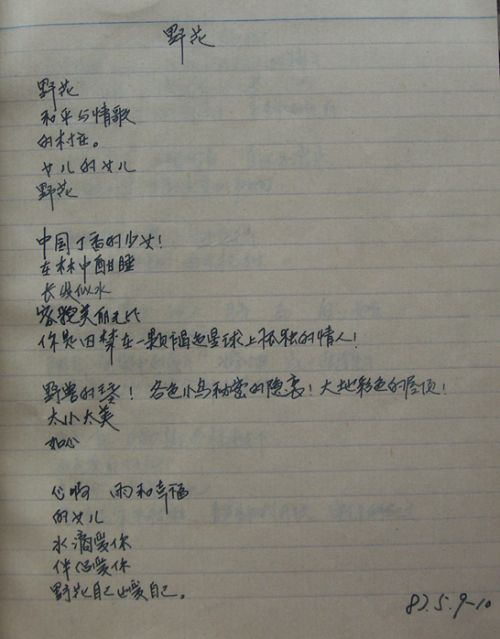 野花
野花
和平与情歌
的村庄。
女儿的女儿
野花
中国丁香的少女！
在林中酣睡
长发似水
容貌美丽无比
你是囚禁在一颗褐色星球上孤独的情人！
野兽的琴！各色小鸟秘密的隐衷！大地彩色的屋顶！
太小太美
如心
心啊 雨和幸福
的女儿
水滴爱你
伴侣爱你
野花自己也爱自己。
87.5.9-10